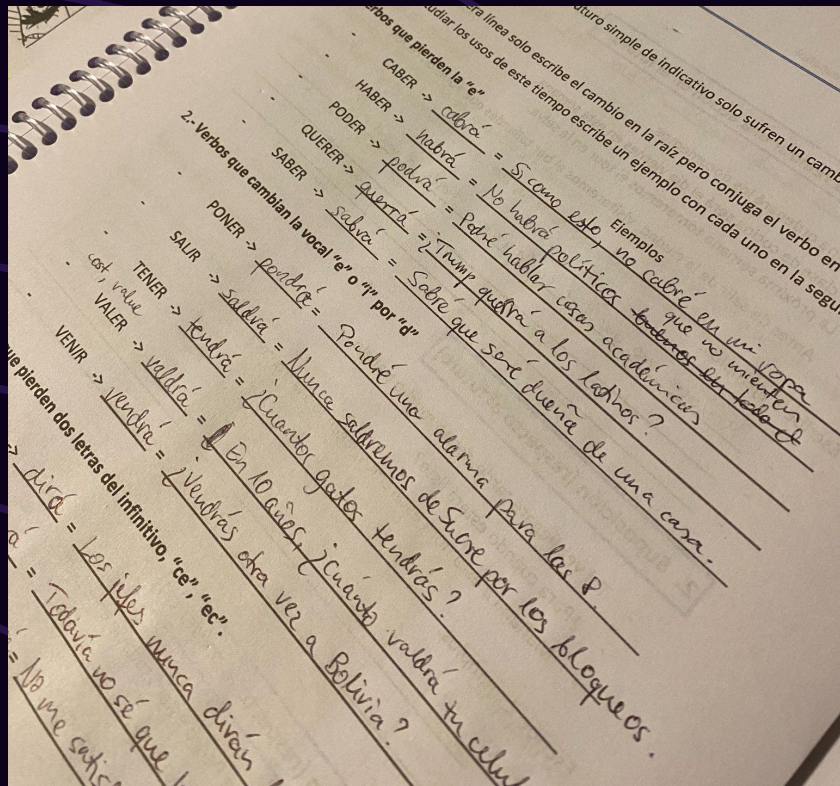 uturo simple de indicativo solo sufren un camb
ra línea solo escribe el cambio en la raíz pero conjuga el verbo en
udiar los usos de este tiempo escribe un ejemplo con cada uno en la segu
erbos que pierden la "e"
Ejemplos
CABER -> cabrá = Si como esto, no cabré en mi ropa
HABER -> habrá = No habrá políticos que no mienten
PODER -> podrá = Podré hablar cosas académicas
QUERER -> querrá = ¿Trump querrá a los latinos?
SABER -> sabrá = Sabré que seré dueña de una casa.
2.- Verbos que cambian la vocal "e" o "i" por "d"
PONER -> pondrá = Pondré una alarma para las 8.
SALIR -> saldrá = Nunca saldremos de Sucre por los bloqueos.
TENER -> tendrá = ¿Cuantos gatos tendrás?
cost, value
VALER -> valdrá = En 10 años, ¿cuánto valdrá tu celul
VENIR -> vendrá = ¿Vendrás otra vez a Bolivia?
ue pierden dos letras del infinitivo, "ce", "ec".
-> dirá = Los jefes nunca dirán
rá = Todavía no sé que
= No me satisf